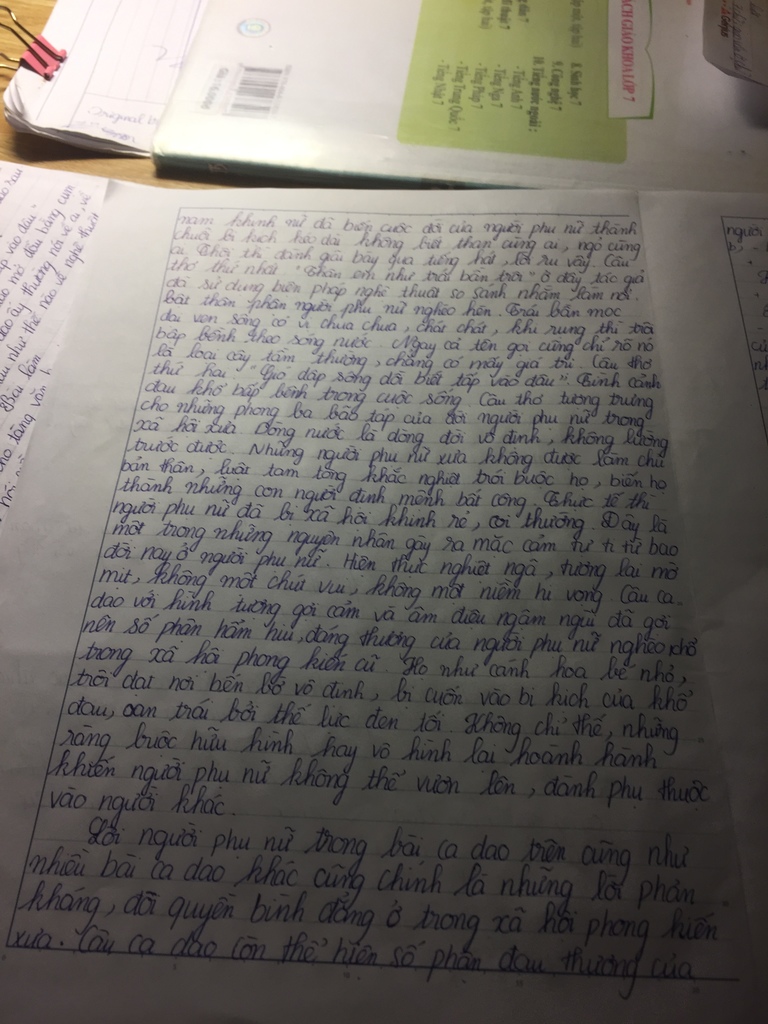 SÁCH GIÁO KHOA LỚP 7
8. Sinh học 7
9. Công nghệ 7
10. Tiếng nước ngoài :
- Tiếng Anh 7
- Tiếng Nga 7
- Tiếng Pháp 7
- Tiếng Trung Quốc 7
- Tiếng Nhật 7
vào đâu"
mở đầu bằng cụm
ấy thương nói về ai về
như thế nào về nghệ thuật
Bài làm
nam khinh nữ đã biến cuộc đời của người phụ nữ thành
chuỗi bi kịch kéo dài không biết than cùng ai, ngỏ cùng
ai. Thôi thì đành giãi bày qua tiếng hát, lời ru vậy. Câu
thơ thứ nhất "Thân em như trái bần trôi" ở đây tác giả
đã sử dụng biện pháp nghệ thuật so sánh nhằm làm nổi
bật thân phận người phụ nữ nghèo hèn. Trái bần mọc
dại ven sông có vị chua chua, chát chát, khi rụng thì trôi
bấp bênh theo sóng nước. Ngay cả tên gọi cũng chỉ rõ nó
là loại cây tầm thường, chẳng có mấy giá trị. Câu thơ
thứ hai "Gió dập sóng dồi biết tấp vào đâu". Tình cảnh
đau khổ bấp bênh trong cuộc sống. Câu thơ tượng trưng
cho những phong ba bão táp của đời người phụ nữ trong
xã hội xưa. Dòng nước là dòng đời vô định, không lường
trước được. Những người phụ nữ xưa không được làm chủ
bản thân, luật tam tòng khắc nghiệt trói buộc họ, biến họ
thành những con người định mệnh bất công. Thực tế thì
người phụ nữ đã bị xã hội khinh rẻ, coi thường. Đây là
một trong những nguyên nhân gây ra mặc cảm tự ti từ bao
đời nay ở người phụ nữ. Hiện thực nghiệt ngã, tương lai mờ
mịt, không một chút vui, không một niềm hi vọng. Câu ca
dao với hình tượng gợi cảm và âm điệu ngậm ngùi đã gợi
nên số phận hẩm hiu, đáng thương của người phụ nữ nghèo khổ
trong xã hội phong kiến cũ. Họ như cánh hoa bé nhỏ,
trôi dạt nơi bến bờ vô định, bị cuốn vào bi kịch của khổ
đau, oan trái bởi thế lực đen tối. Không chỉ thế, những
ràng buộc hữu hình hay vô hình lại hoành hành
khiến người phụ nữ không thể vươn lên, đành phụ thuộc
vào người khác.
Lời người phụ nữ trong bài ca dao trên cũng như
nhiều bài ca dao khác cũng chính là những lời phản
kháng, đòi quyền bình đẳng ở trong xã hội phong kiến
xưa. Câu ca dao còn thể hiện số phận đau thương của
người
b)